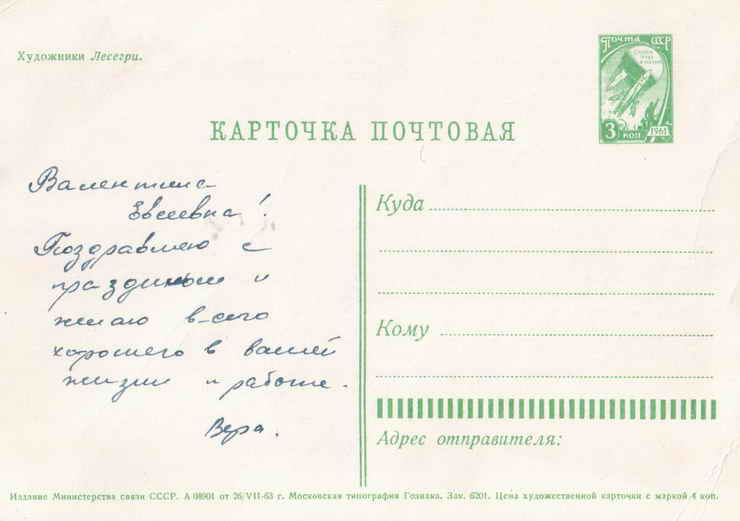 Художники Лесегри.
ПОЧТА СССР
3 КОП 1961
КАРТОЧКА ПОЧТОВАЯ
Валентина
Евсеевна!
Поздравляю с
праздником и
желаю всего
хорошего в вашей
жизни и работе.
Вера.
Куда
Кому
Адрес отправителя:
Издание Министерства связи СССР. А 08901 от 26/VII-63 г. Московская типография Гознака. Зак. 6201. Цена художественной карточки с маркой 4 коп.